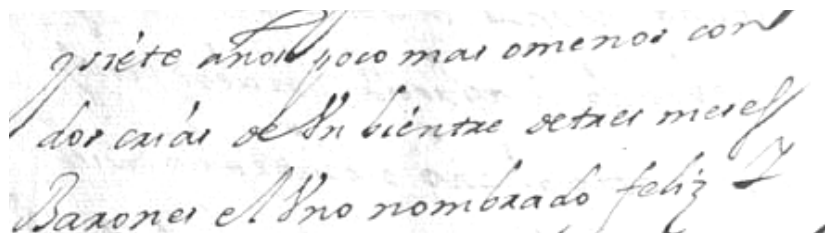 y siéte años poco mas omenos con
dos criás de Vn biéntre detres meses
Barones el Vno nombrado feliz Y